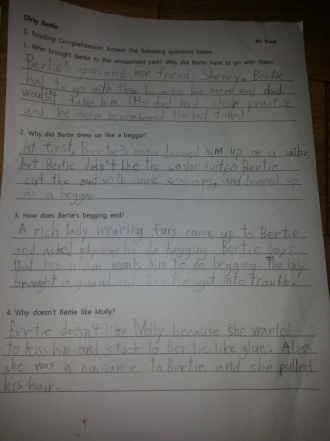 Dirty Bertie
B. Reading Comprehension: Answer the following questions below.
1. Who brought Bertie to the amusement park? Why did Bertie have to go with them?
Bertie's gran and her friend, Sherry. Bertie
had to go with them because his mom and dad
wouldn't take him. (His dad had choir practice
and he mom remembered the last time)
2. Why did Bertie dress up like a beggar?
At first, Bertie's mom dressed him up as a sailor,
but Bertie didn't like the sailor suit so Bertie
cut the suit with some scissors, and dressed up
as a beggar.
3. How does Bertie's begging end?
A rich lady wearing furs came up to Bertie
and asked why does he do begging. Bertie says
that his mom wants him to do begging. The lady
brought a guard and Bertie got into trouble.
4. Why doesn't Bertie like Molly?
Bertie doesn't like Molly because she wanted
to kiss him and stuck to Bertie like glue. Also
she was a nuisance to Bertie and she pulled
his hair.